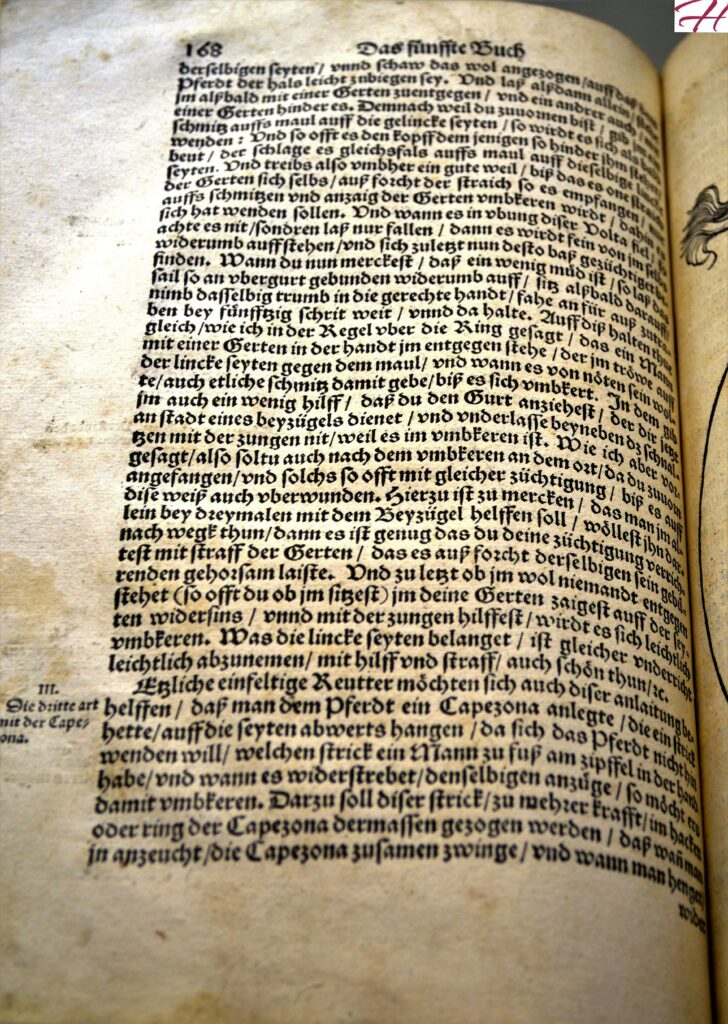 H
168 Das fünffte Buch
derselbigen seyten / vnnd schaw das wol angezogen / auff daß
Pferdt der hals leicht zubiegen sey. Vnd laß alßdann allein /
jm alßbald mit einer Gerten zuentgegen / vnd ein andrer auch
einer Gerten hinder es. Demnach weil du zuuornen bist / gib jm
schmitz auffs maul auff die gelincke seyten / so wirdt es sich als
wenden : Vnd so offt es den kopff dem jenigen so hinder jhm
beut / der schlage es gleichsfals auffs maul auff dieselbige
seyten. Vnd treibs also vmbher ein gute weil / biß das es one
der Gerten sich selbs / auß forcht der straich so es empfangen /
auffs schmitzen vnd anzaig der Gerten vmbkeren wirdt / dahin
sich hat wenden sollen. Vnd wann es in vbung diser Volta fiel / so
achte es nit / sondren laß nur fallen / dann es wirdt fein von jm selbs
widerumb auffstehen / vnd sich zuletzt nun desto baß gezüchtiget
finden. Wann du nun merckest / daß ein wenig müd ist / so laß das
sail so an vbergurt gebunden widerumb auff / sitz alßbald darauff
nimb dasselbig trumb in die gerechte handt / fahe an für auß
ben bey fünfftzig schrit weit / vnnd da halte. Auff diß halten
gleich / wie ich in der Regel vber die Ring gesagt / das ein Mann
mit einer Gerten in der handt jm entgegen stehe / der jm tröwe auff
der lincke seyten gegen dem maul / vnd wann es von nöten sein wol
te / auch etliche schmitz damit gebe / biß es sich vmbkert. In dem gib
jm auch ein wenig hilff / daß du den Gurt anziehest / der dir jetzt
an stadt eines beyzügels dienet / vnd vnderlasse beyneben dz schnal-
tzen mit der zungen nit / weil es im vmbkeren ist. Wie ich aber vor
gesagt / also soltu auch nach dem vmbkeren an dem ort / da du zuuorn
angefangen / vnd solchs so offt mit gleicher züchtigung / biß es auff
dise weiß auch vberwunden. Hierzu ist zu mercken / das man jm al-
lein bey dreymalen mit dem Beyzügel helffen soll / wöllest jhn dar-
nach wegk thun / dann es ist genug das du deine züchtigung verrich-
test mit straff der Gerten / das es auß forcht derselbigen sein gebü-
renden gehorsam laiste. Vnd zu letzt ob jm wol niemandt entgegen
stehet (so offt du ob jm sitzest) jm deine Gerten zaigest auff der sey-
ten widersins / vnnd mit der zungen hilffest / wirdt es sich leichtlich
vmbkeren. Was die lincke seyten belanget / ist gleicher vnderricht
leichtlich abzunemen / mit hilff vnd straff / auch schön thun / zc.
III.
Die dritte art
mit der Cape-
zona.
Etzliche einfeltige Reutter möchten sich auch diser anlaitung be-
helffen / daß man dem Pferdt ein Capezona anlegte / die ein strick
hette / auff die seyten abwerts hangen / da sich das Pferdt nicht hin
wenden will / welchen strick ein Mann zu fuß am zipffel in der hand
habe / vnd wann es widerstrebet / denselbigen anzüge / so möcht ers
damit vmbkeren. Darzu soll diser strick / zu mehrer krafft / im hacken
oder ring der Capezona dermassen gezogen werden / daß wañ man
jn anzeucht / die Capezona zusamen zwinge / vnd wann man henget
wider